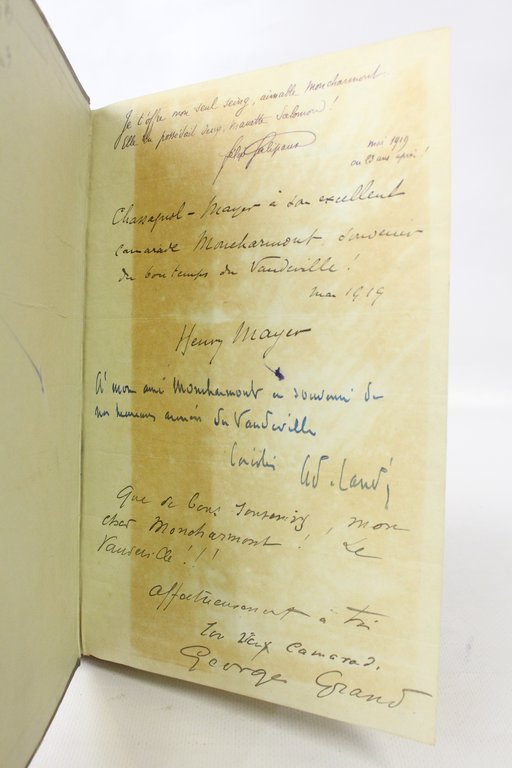 Je t'offre mon seul seing, aimable Moncharmont.
Elle en possédait cinq, Nanette Salomon!
Félix Galipaux
mai 1919
ou 23 ans après!
Chassagnol - Mayer à son excellent
camarade Moncharmont, souvenir
du bon temps du Vaudeville!
mai 1919
Henry Mayer
A mon ami Moncharmont en souvenir de
nos années du Vaudeville
Ad. Candé
Que de bons souvenirs, mon
cher Moncharmont! Le
Vaudeville!!!
Affectueusement à toi
Ton vieux camarade.
George Grand